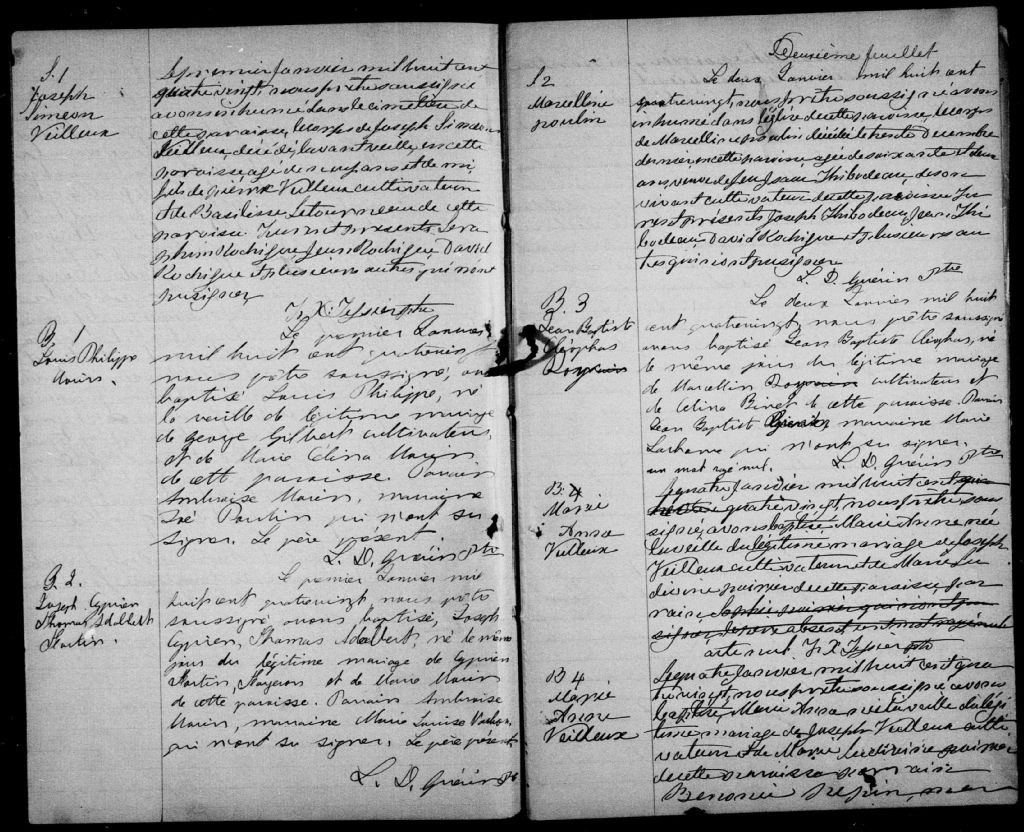 S. 1
Joseph
Simeon
Veilleux
Le premier Janvier mil huit cent
quatre vingt, nous prêtre soussigné
avons inhumé dans le cimetière de
cette paroisse, le corps de Joseph Simeon
Veilleux, décédé l'avant veille, en cette
paroisse, agé de six ans et demi,
fils de pierre Veilleux cultivateur
et de Basilisse Letourneau de cette
paroisse. Furent présents Sera
phim Rodrigue, Jean Rodrigue, David
Rodrigue et plusieurs autres qui n'ont
pu signer
F. X. Tessier ptre
B. 1
Louis Philippe
Morin.
Le premier Janvier
mil huit cent quatrevingt
nous prêtre soussigné, avons
baptisé Louis Philippe, né
la veille de légitime mariage
de George Gilbert cultivateur,
et de Marie Elina Morin
de cette paroisse. Parain
Ambroise Morin, maraine
Poulin qui n'ont su
signer. Le père présent.
L. D. Guérin ptre
B 2.
Joseph Cyprien
Thomas Adelbert
Le premier Janvier mil
huit cent quatrevingt nous prêtre
soussigné, avons baptisé, Joseph
Cyprien, Thomas Adelbert, né le même
jour du légitime mariage de Cyprien
et de Marie Morin
de cette paroisse. Parain Ambroise
Morin, maraine Marie Louise Vachon,
qui n'ont su signer. Le père présent
L. D. Guérin ptre
Deuxième feuillet
S 2
Marcelline
poulin
Le deux Janvier mil huit cent
quatrevingt, nous prêtre soussigné avons
inhumé dans l'église de cette paroisse, le corps
de Marcelline poulin décédée le trente Decembre
dernier en cette paroisse agée de soixante et deux
ans, veuve de feu Isaïe Thibodeau, de son
vivant cultivateur de cette paroisse. Fu
rent présents Joseph Thibodeau, Jean Thi
bodeau, David Rodrigue et plusieurs au
tres qui n'ont pu signer
L. D. Guérin ptre
B. 3
Jean Baptist
Cléophas
Le deux Janvier mil huit
cent quatrevingt, nous prêtre soussigné
avons baptisé Jean Baptiste Cléophas, né
le même jour du légitime mariage
de Marcellin cultivateur et
de Celina Binet de cette paroisse. Parain
Jean Baptist maraine Marie
qui n'ont su signer.
un mot rayé nul. L. D. Guérin ptre
B 4
Marie
Anna
Veilleux
Le quatre Janvier mil huit cent
quatre vingt, nous prêtre sous
signé, avons baptisé Marie Anna née
la veille du légitime mariage de Joseph
Veilleux cultivateur et de Marie Lu
divine poirier de cette paroisse, par
raine Sophie poirier qui n'ont pu
signer, le père absent
acte nul. F. X. Tessier ptre
B 4
Marie
Anna
Veilleux
Le quatre Janvier mil huit cent qua
trevingt, nous prêtre soussigné avons
baptisé, Marie Anna née la veille du légi
time mariage de Joseph Veilleux culti
vateur et de Marie Ludivine poirier
de cette paroisse parrain